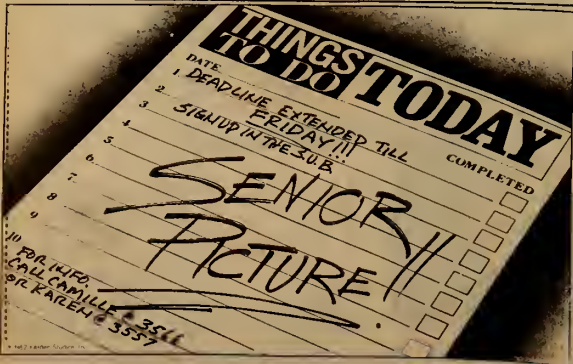 THINGS TO DO TODAY
DATE
COMPLETED
1. DEADLINE EXTENDED TILL
2 FRIDAY!!!
3 SIGN UP IN THE S.U.B
4
5.
6.
7.
8
9
10
SENIOR!!
PICTURE!!
FOR INFO.
CALL CAMILLE @
OR KAREN @ 3557